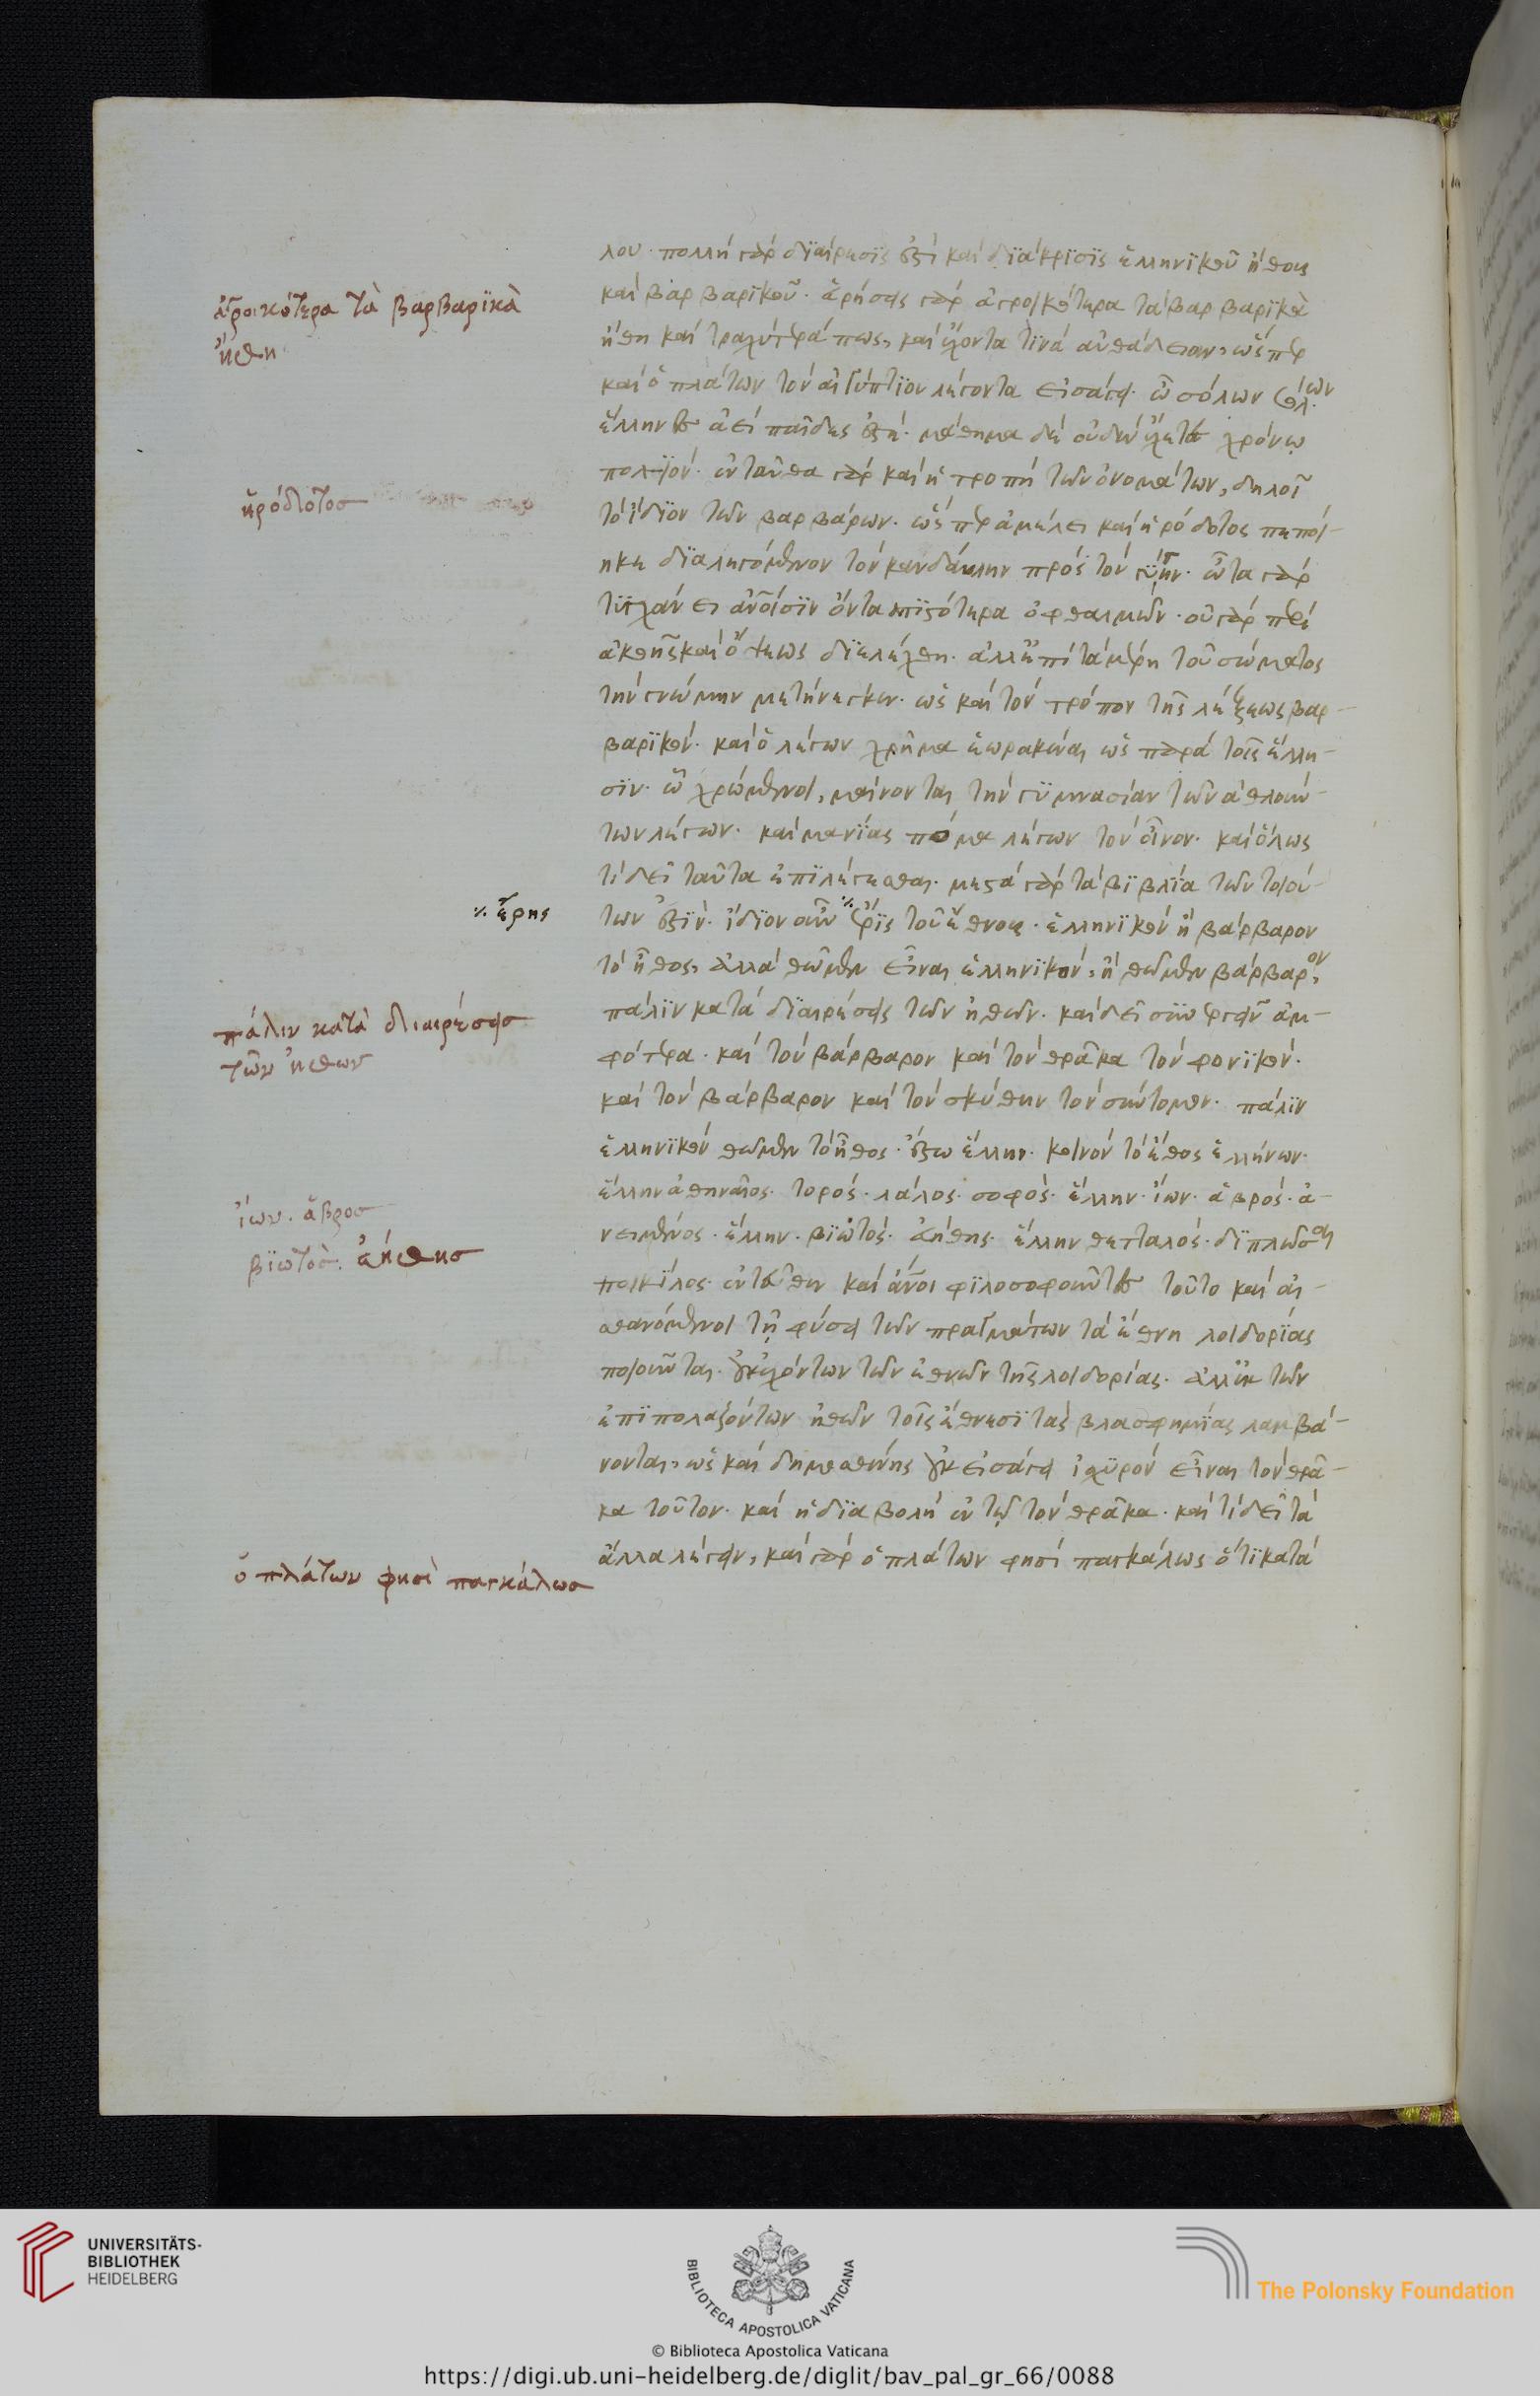 λου· πολλὴ γὰρ διαίρεσις ἐστὶ καὶ διάκρισις ἑλληνικοῦ ἤθους
καὶ βαρβαρικοῦ· εὑρήσεις γὰρ ἀγροικότερα τὰ βαρβαρικὰ
ἤθη καὶ τραχύτερά πως, καὶ ἔχοντα τινὰ αὐθάδειαν, ὥσπερ
καὶ ὁ πλάτων τὸν αἰγύπτιον λέγοντα εἰσάγει· ὦ σόλων σόλων
ἕλληνες ἀεὶ παῖδες ἐστέ· μάθημα δὲ οὐδὲν ἔχετε χρόνω
πολιόν· ἐνταῦθα γὰρ καὶ ἡ τροπὴ τῶν ὀνομάτων, δηλοῖ
τὸ ἴδιον τῶν βαρβάρων· ὥσπερ ἀμέλει καὶ ἡρόδοτος πεποί-
ηκε διαλεγόμενον τὸν κανδάυλην πρὸς τὸν γύγην· ὦτα γὰρ
τυγχάνει ἀνθρώποισιν ὄντα ἀπιστότερα ὀφθαλμῶν· οὐ γὰρ περὶ
ἀκοῆς καὶ ὄψεως διελέχθη· ἀλλ' ἐπὶ τὰ μέρη τοῦ σώματος
τὴν γνώμην μετήνεγκεν· ὡς καὶ τὸν τρόπον τῆς λέξεως βαρ-
βαρικόν· καὶ ὁ λέγων χρῆμα ἑωρακέναι ὡς παρὰ τοῖς ἕλλη-
σιν· ὧ χρώμενοι, μαίνονται τὴν γυμνασίαν τῶν ἀθλούν-
των λέγων· καὶ μανίας πόμα λέγων τὸν οἶνον· καὶ ὅλως
τί δεῖ ταῦτα ἐπιλέγεσθαι· μεστὰ γὰρ τὰ βιβλία τῶν τοιού-
των ἐστίν· ἴδιον οὖν ἔρις τοῦ ἔθνους· ἑλληνικὸν ἢ βάρβαρον
τὸ ἦθος, ἀλλὰ θῶμεν εἶναι ἑλληνικόν, ἢ θῶμεν βάρβαρον,
πάλιν κατὰ διαιρέσεις τῶν ἠθῶν· καὶ δεῖ συνάγειν ἀμ-
φότερα· καὶ τὸν βάρβαρον καὶ τὸν θρᾶκα τὸν φονικόν·
καὶ τὸν βάρβαρον καὶ τὸν σκύθην τὸν σύντομον· πάλιν
ἑλληνικὸν θῶμεν τὸ ἦθος· ἔστω ἕλλην· κοινὸν τὸ ἔθος ἑλλήνων·
ἕλλην ἀθηναῖος· τορός· λάλος· σοφός· ἕλλην· ἴων· ἁβρός· ἀ-
νειμένος· ἕλλην· βιωτός· ἀήθης· ἕλλην θετταλός· διπλοῦς
ποικίλος· ἐντεῦθεν καὶ ἄνθρωποι φιλοσοφοῦντες τοῦτο καὶ αἰ-
σθανόμενοι τῆ φύσει τῶν πραγμάτων τὰ ἔθνη λοιδορίας
ποιοῦνται· οὐκ ἐχόντων τῶν ἐθνῶν τῆς λοιδορίας· ἀλλ' ἐκ τῶν
ἐπιπολαζόντων ἠθῶν τοῖς ἔθνεσι τὰς βλασφημίας λαμβά-
νονται, ὡς καὶ δημοσθένης οὐκ εἰσάγει ἰσχυρὸν εἶναι τὸν θρᾶ-
κα τοῦτον· καὶ ἡ διαβολὴ ἐν τῶ τὸν θρᾶκα· καὶ τί δεῖ τὰ
ἄλλα λέγειν, καὶ γὰρ ὁ πλάτων φησὶ παγκάλως ὅτι κατὰ
ἀγροικότερα τὰ βαρβαρικὰ
ἤθη
ἡρόδοτος
ἔρης
πάλιν κατὰ διαιρέσεις
τῶν ἠθῶν
ἴων· ἄβρος
βιωτὸς· ἀήθης
ὁ πλάτων φησὶ παγκάλως
UNIVERSITÄTS-
BIBLIOTHEK
HEIDELBERG
BIBLIOTECA APOSTOLICA VATICANA
The Polonsky Foundation
© Biblioteca Apostolica Vaticana
https://digi.ub.uni-heidelberg.de/diglit/bav_pal_gr_66/0088